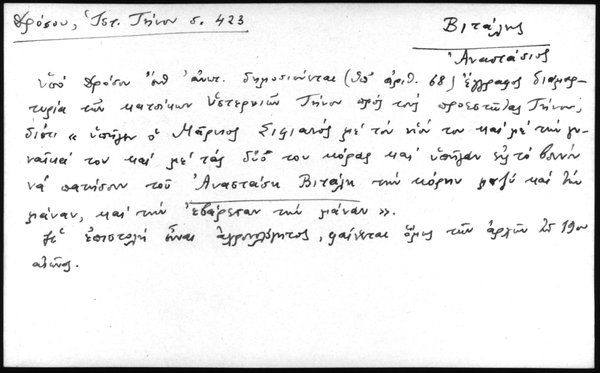 Δρόσου, Ἱστ. Τήνου σ. 423
Βιτάλης
Ἀναστάσιος
Ὑπό Δρόσου ἔνθ' ἀνωτ. δημοσιεύεται (ὑπ' ἀριθ. 68) ἔγγραφος διαμαρ-
τυρία τῶν κατοίκων Ὑστερνιῶν Τήνου πρός τούς προεστῶτας Τήνου,
διότι « ὑπῆγεν ὁ Μάρκος Σιγιανός μέ τόν υἱόν του καί μέ τήν γυ-
ναῖκά του καί μέ τάς δύο του κόρας καί ὑπῆγαν εἰς τό βουνόν
νά πατήσουν τοῦ Ἀναστάση Βιτάλη τήν κόρην μαζύ καί τήν
μάναν, καί τήν ἐβάρεσαν τήν μάναν ».
Ἡ ἐπιστολή εἶναι ἀχρονολόγητος, φαίνεται ὅμως τῶν ἀρχῶν τοῦ 19ου
αἰῶνος.